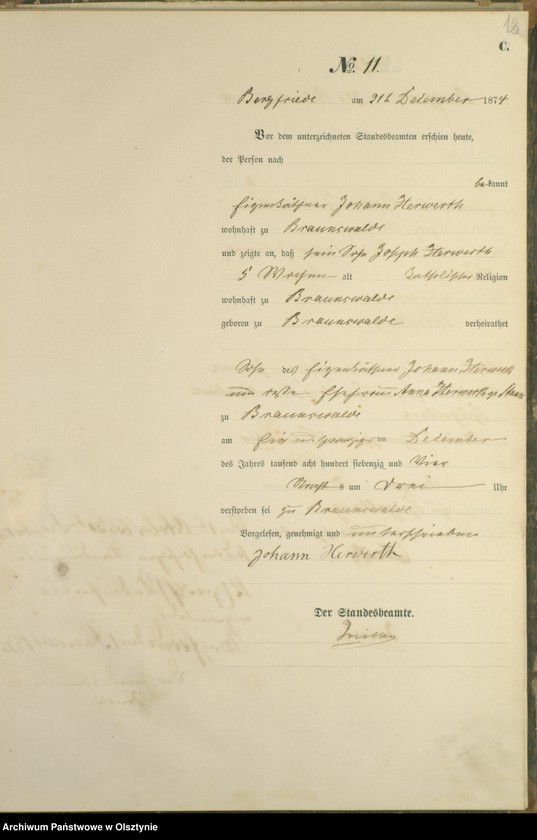 18
C.
No. 11.
Bergfriede am 21t Dezember 1874
Vor dem unterzeichneten Standesbeamten erschien heute,
der Person nach
bekannt
Eigenkäthner Johann Herwerth
wohnhaft zu Braunswalde
und zeigte an, daß sein Sohn Joseph Herwerth
5 Wochen alt katholischer Religion
wohnhaft zu Braunswalde
geboren zu Braunswalde verheirathet
Sohn des Eigenkäthners Johann Herwerth
und Ehefrau Anna Herwerth
zu Braunswalde
am Ein und zwanzigsten Dezember
des Jahres tausend acht hundert siebenzig und Vier
Nachts um Drei Uhr
verstorben sei zu Braunswalde
Vorgelesen, genehmigt und unterschrieben
Johann Herwerth
Der Standesbeamte.
Archiwum Państwowe w Olsztynie